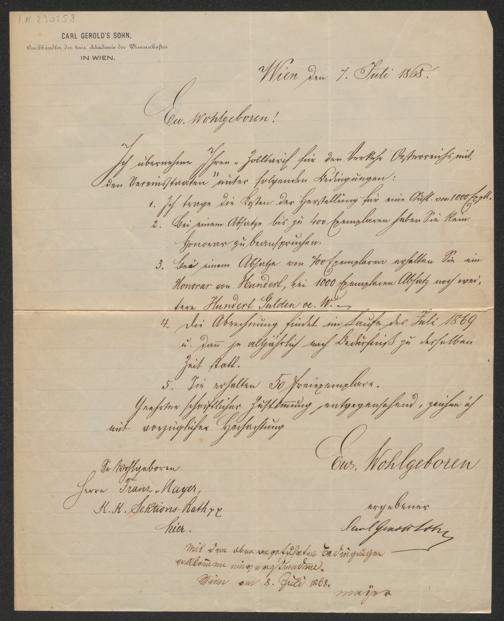 I.N. 230258
CARL GEROLD'S SOHN,
Buchhändler der kais. Akademie der Wissenschaften
IN WIEN.
Wien den 7. Juli 1868.
Ew. Wohlgeboren!
Ich übernehme Ihren „Zolltarif für den Verkehr Oesterreichs mit
den Vereinsstaaten" unter folgenden Bedingungen:
1. Ich trage die Kosten der Herstellung für eine Aufl. von 1000 Expl.
2. Bei einem Absatze bis zu 400 Exemplaren haben Sie kein
Honorar zu beanspruchen.
3. Bei einem Absatze von 700 Exemplaren erhalten Sie ein
Honorar von Hundert, bei 1000 Exemplaren Absatz noch wei,
tere Hundert Gulden oe. W.
4. Die Abrechnung findet im Laufe des Juli 1869
u. dann je alljährlich nach Bedürfniß zu derselben
Zeit statt.
5. Sie erhalten 50 Freiexemplare.
Geehrter schriftlicher Zustimmung entgegensehend, zeichne ich
mit vorzüglicher Hochachtung
Euer Wohlgeboren
Sr Wohlgeboren
Herrn Franz Mayer,
K. K. Sektions-Rath
hier.
ergebener
Carl Gerold Sohn
Mit den oben angeführten Bedingungen
vollkommen einverstanden.
Wien am 8. Juli 1868.
Mayer